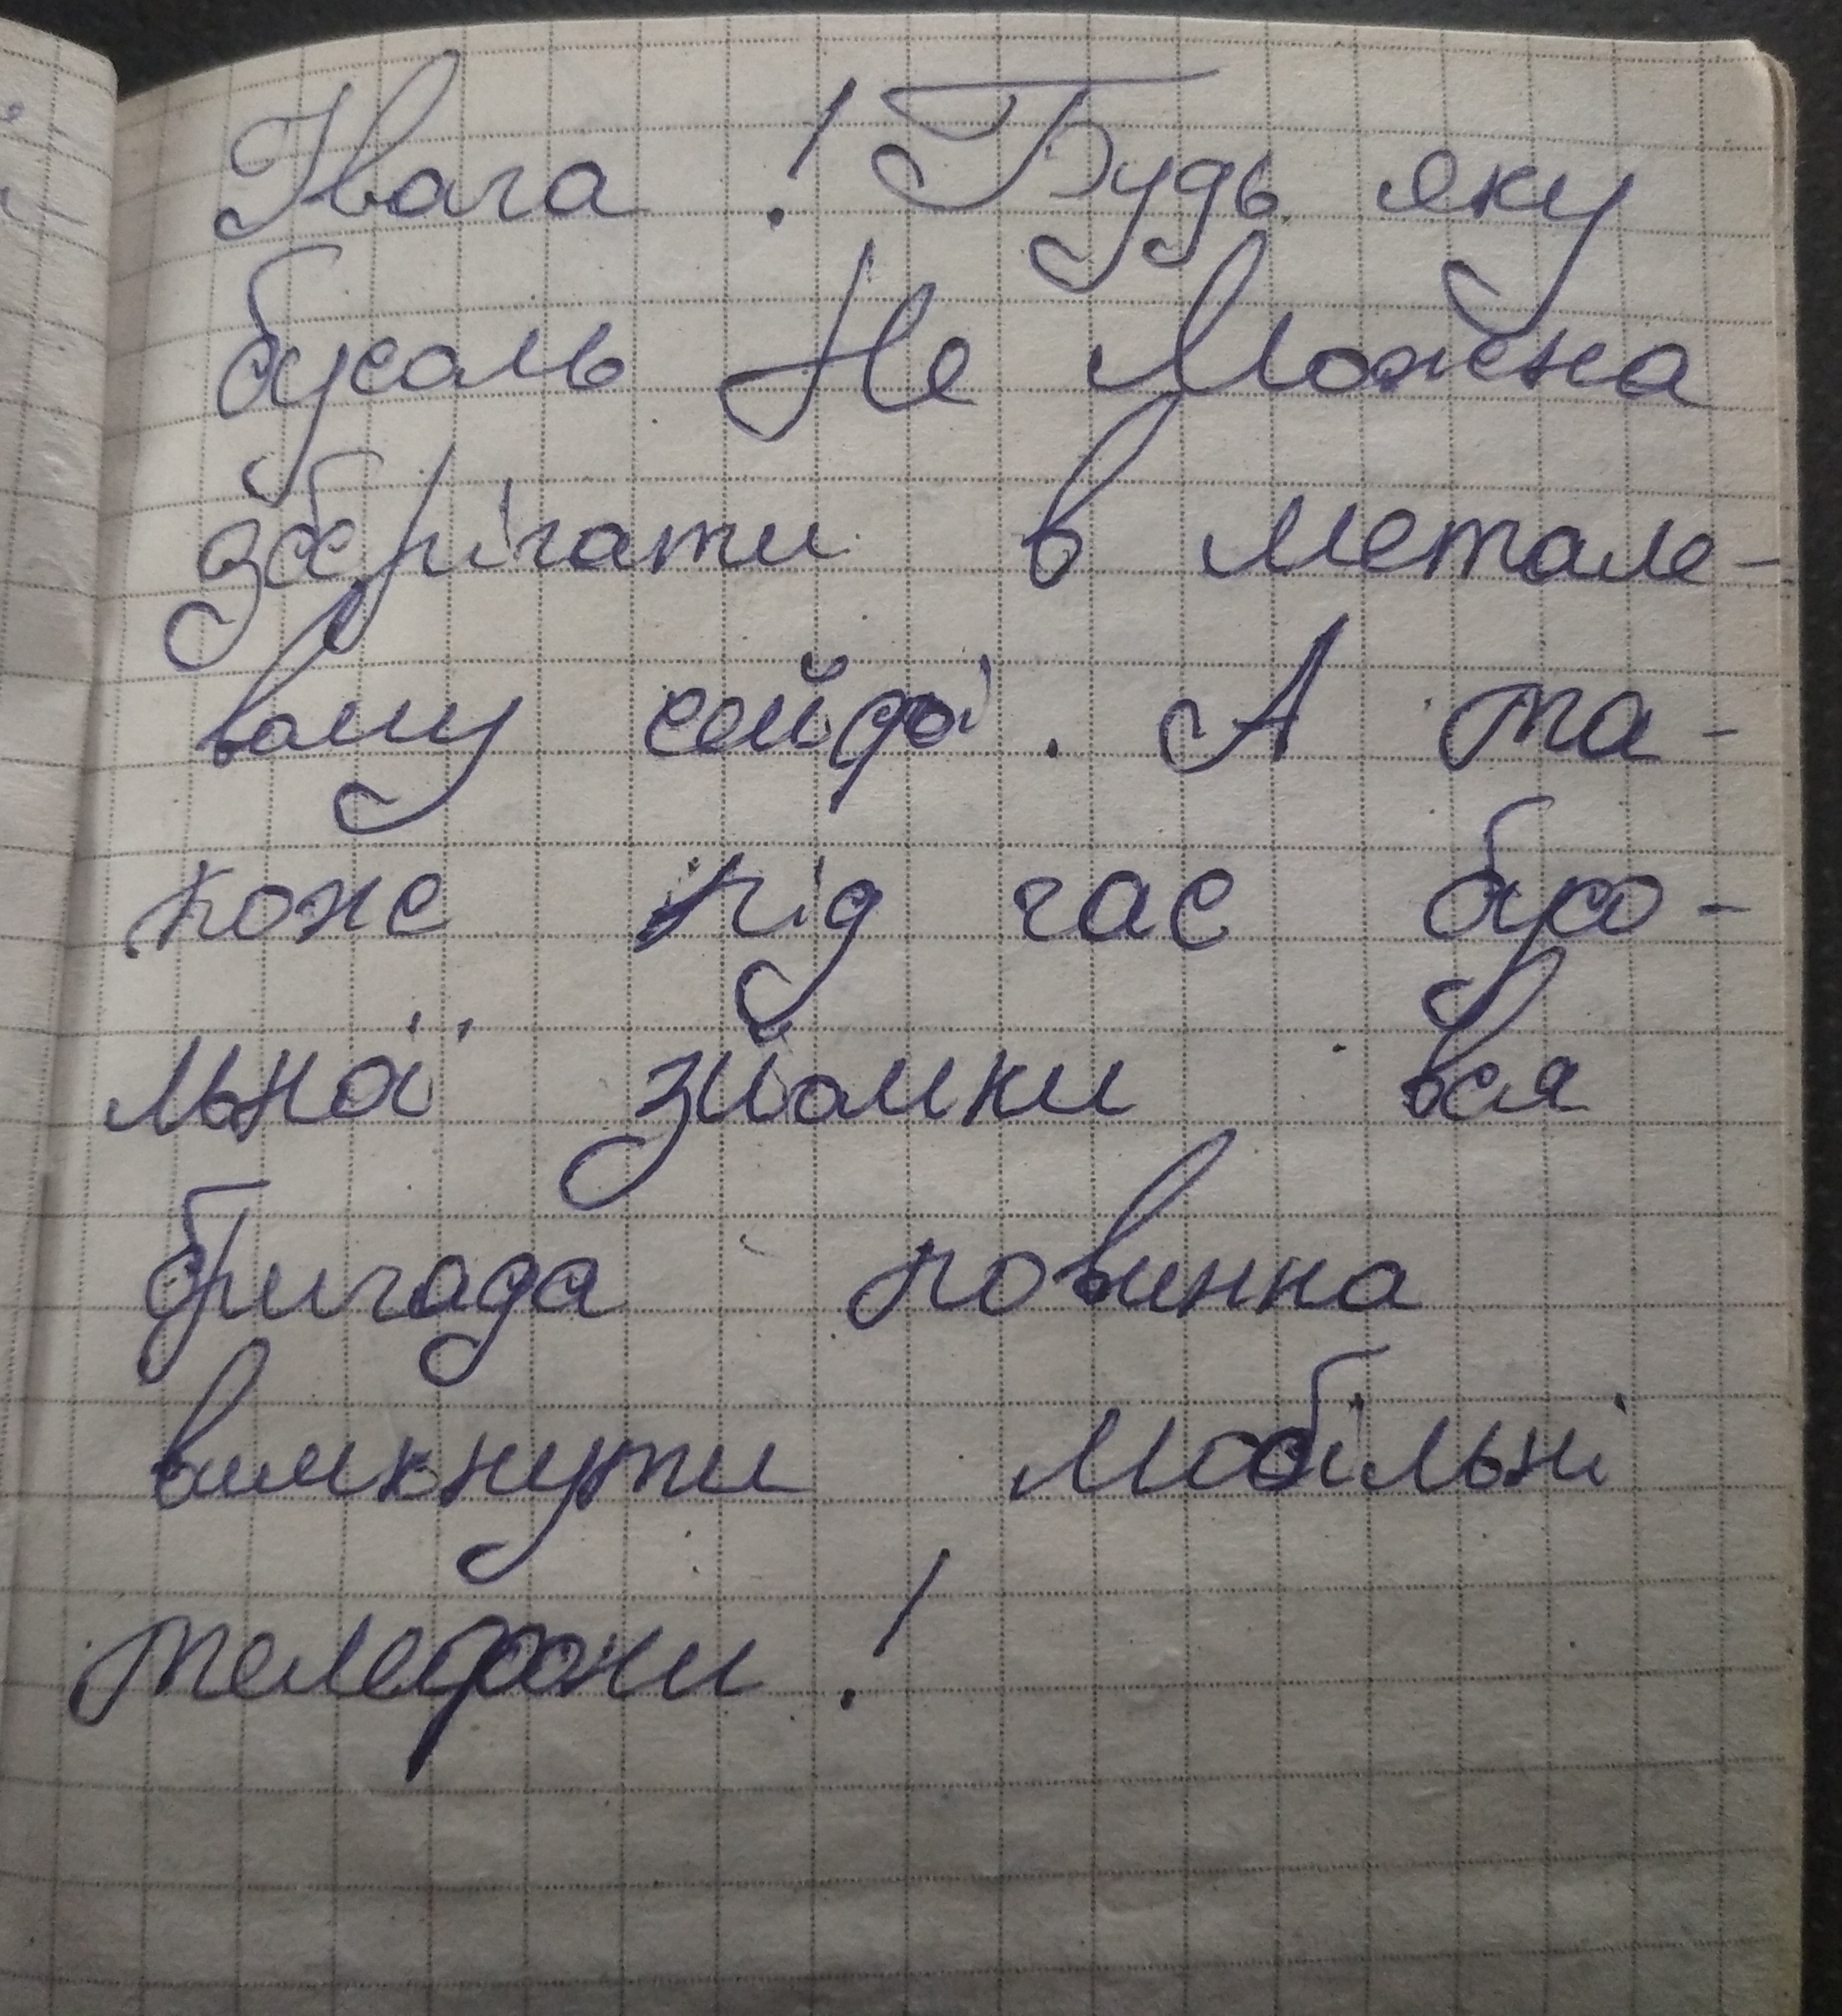 Увага ! Будь яку
бусоль Не Можна
зберігати в метале-
вому сейфі . А та-
кож під час бусо-
льної зйомки вся
бригада повинна
вимкнути мобільні
телефони !